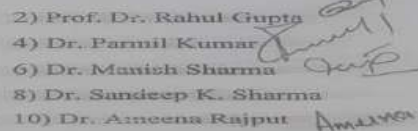 2) Prof. Dr. Rahul Gupta
4) Dr. Parmil Kumar
6) Dr. Manish Sharma
8) Dr. Sandeep K. Sharma
10) Dr. Ameena Rajput